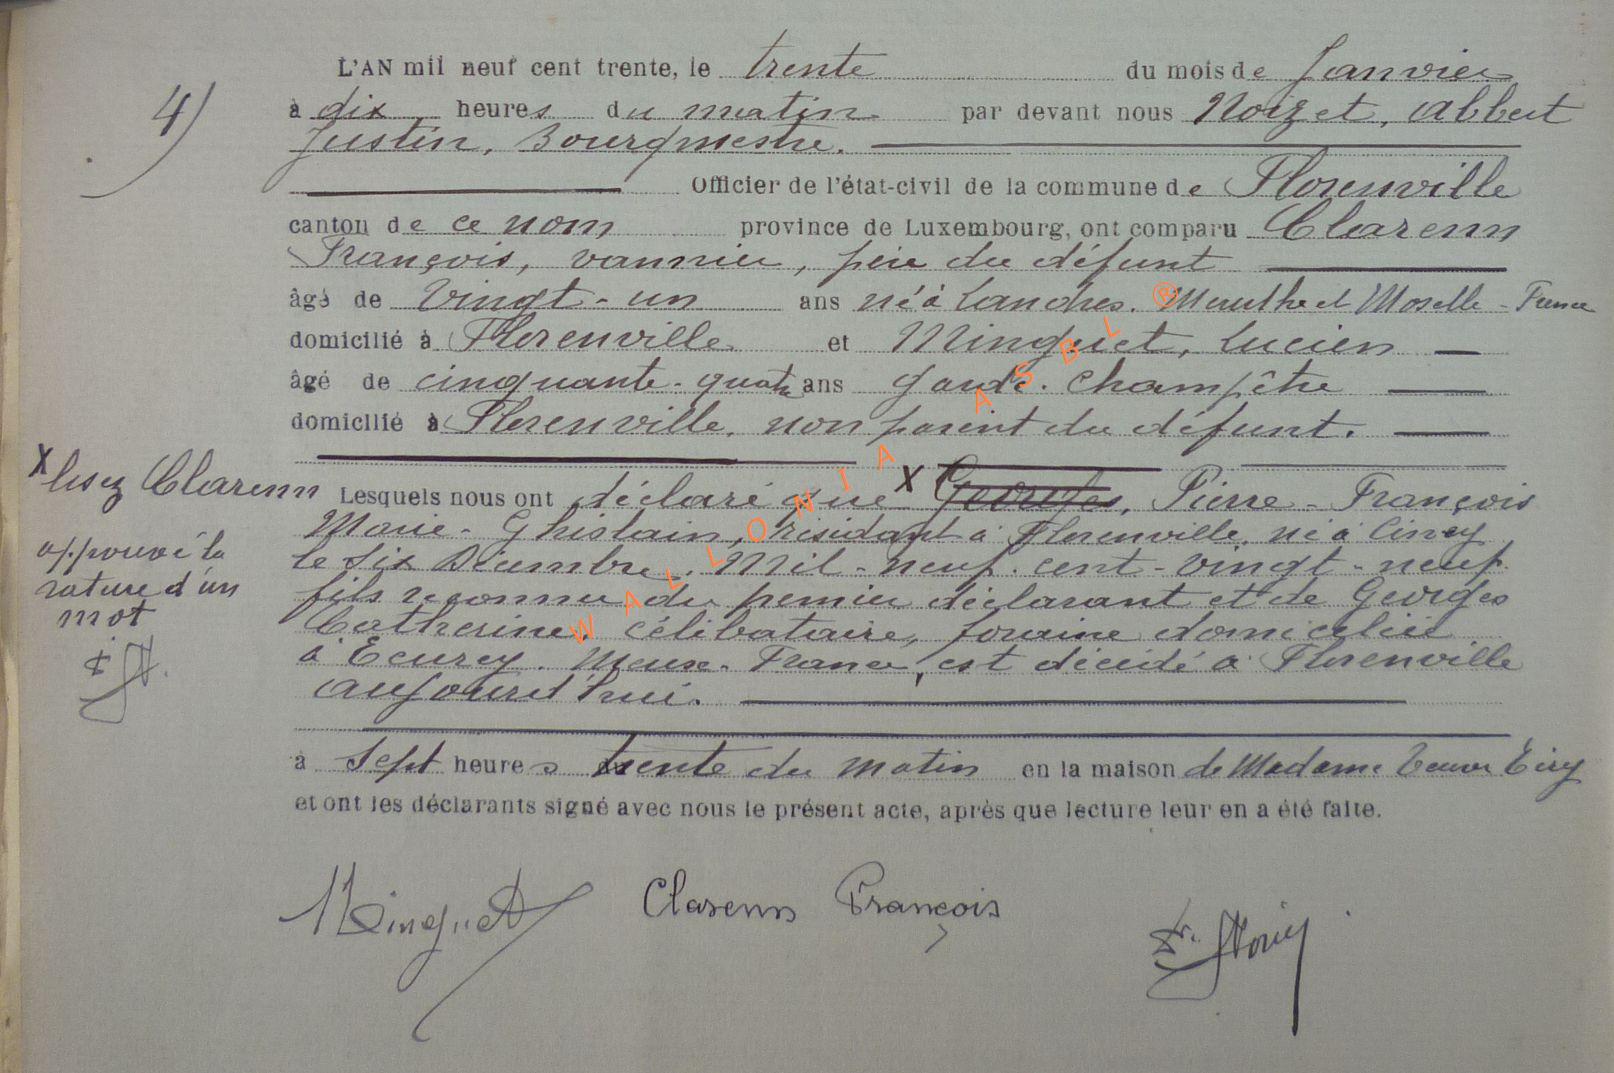 4)
L'AN mil neuf cent trente, le trente du mois de Janvier
à dix heures du matin par devant nous Noizet, Albert
Justin, Bourgmestre.
Officier de l'état-civil de la commune de Florenville
canton de ce nom province de Luxembourg, ont comparu Clarenn
François, vannier, père du défunt
âgé de vingt-un ans né à Landres. Meurthe et Moselle - France
domicilié à Florenville et Minguet, Lucien
âgé de cinquante-quatre ans garde-champêtre
domicilié à Florenville, non parent du défunt.
X lisez Clarenn
approuvé la
rature d'un
mot
Lesquels nous ont déclaré que X Georges, Pierre-François
Marie-Ghislain, résidant à Florenville, né à Ciney
le six Décembre Mil-neuf-cent-vingt-neuf
fils reconnu du premier déclarant et de Georges
Catherine, célibataire, foraine domiciliée
à Ecurey. Meuse. France, est décédé à Florenville
aujourd'hui.
à sept heures trente du matin en la maison de Madame Veuve
et ont les déclarants signé avec nous le présent acte, après que lecture leur en a été faite.
Minguet Clarenn François
WALLONIA ASBL ®